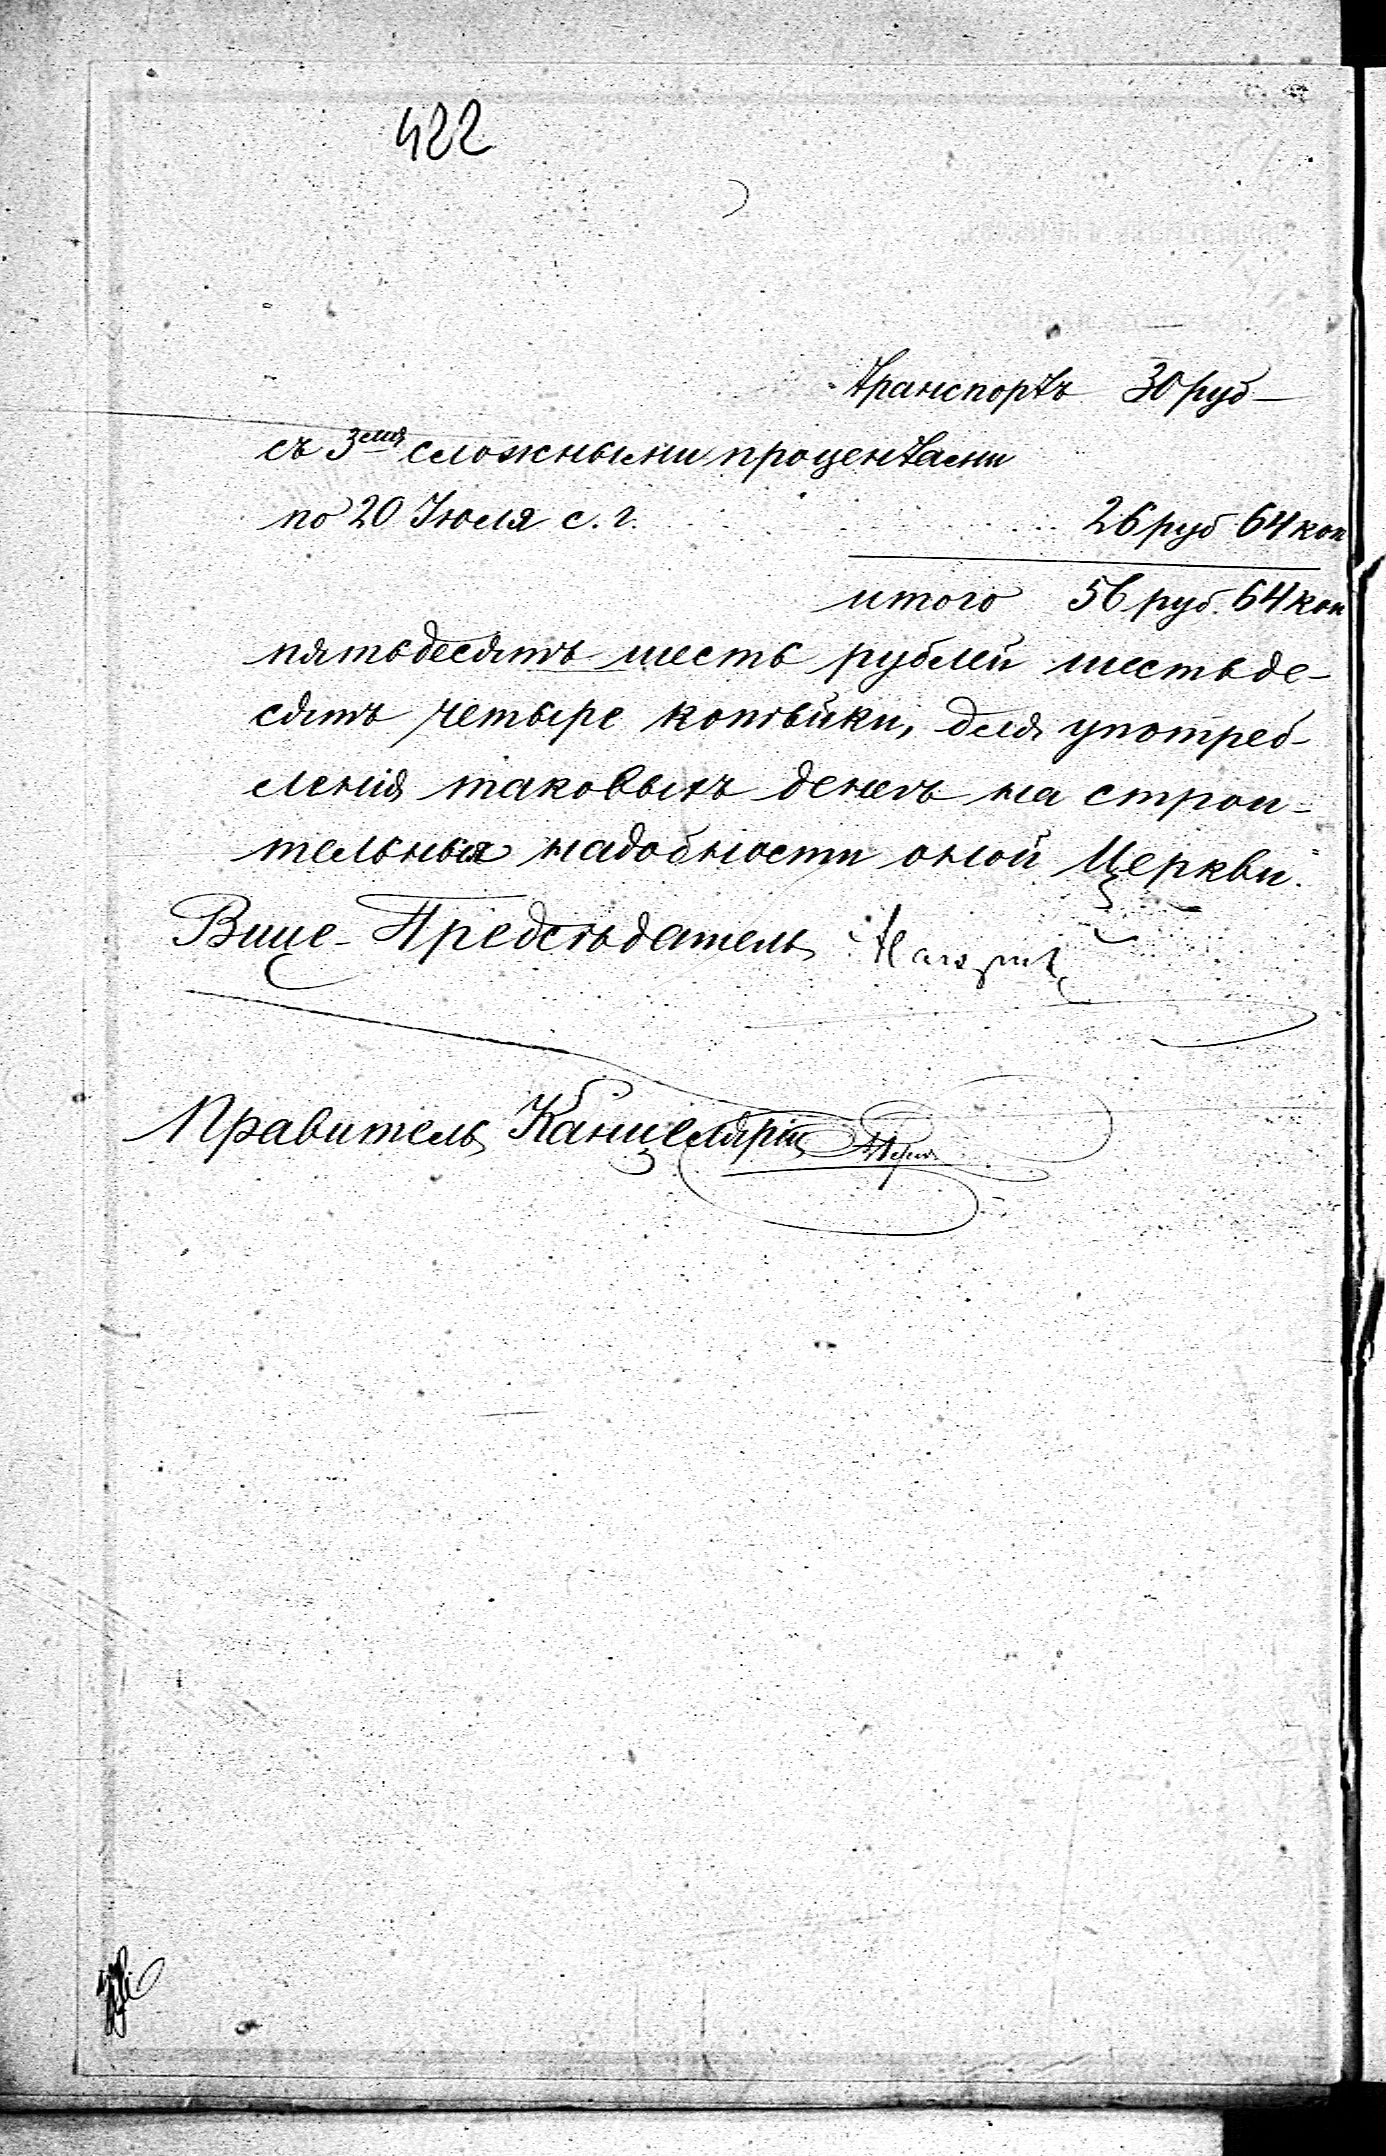 422
транспортъ 30 руб —
съ 3емя сложными процентами
по 20 Июля с. г. 26 руб 64 коп
итого 56 руб. 64 коп
пятьдесятъ шесть рублей шестьде-
сятъ четыре копѣйки, для употреб-
ленія таковыхъ денегъ на строи-
тельныя надобности оной Церкви.
Вице-Предсѣдатель
Правитель Канцеляріи